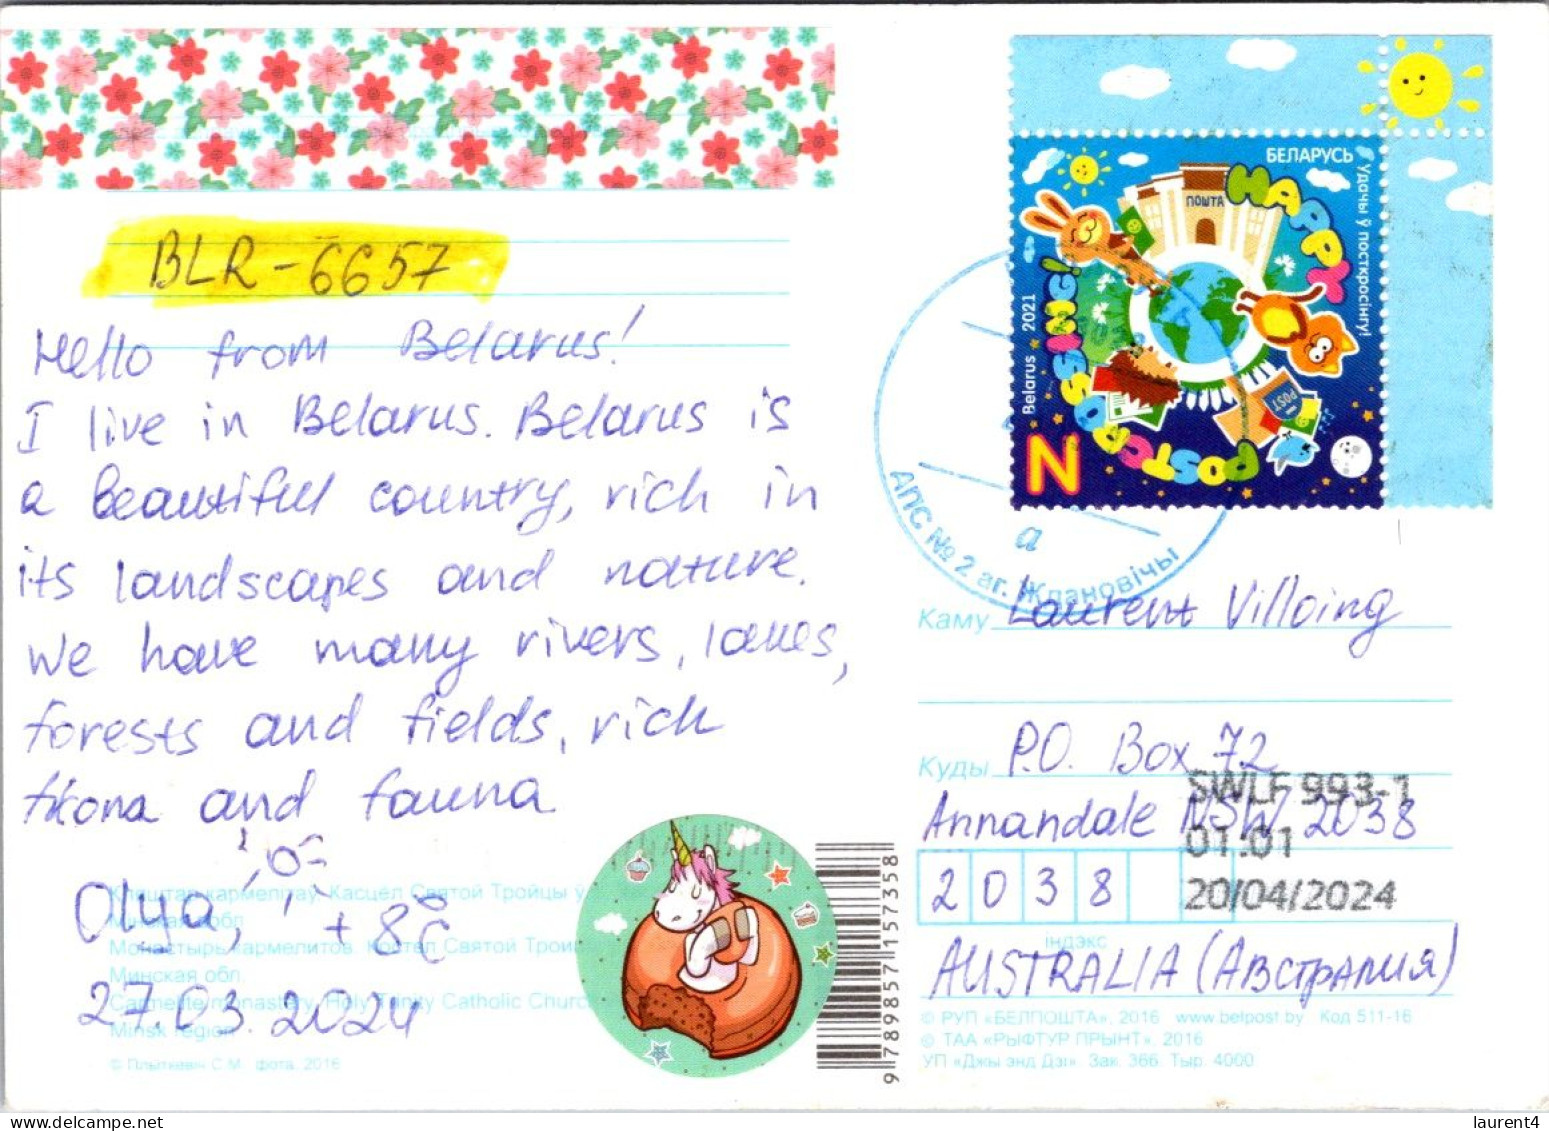 BLR-6657
Hello from Belarus!
I live in Belarus. Belarus is
a beautiful country, rich in
its landscapes and nature.
We have many rivers, lakes,
forests and fields, rich
and fauna
Olya,
+8°C
27.03.2024
Кляштар кармелітаў. Касцёл Святой Тройцы ў
Мінская вобл.
Монастырь кармелитов. Костёл Святой
Минская обл.
Carmelite monastery. Holy Trinity Catholic Church
Minsk region
© Плыткевіч С.М. фота, 2016
9 789857 157358
БЕЛАРУСЬ
Удачы ў посткросінгу!
ПОШТА
HAPPY
POSTCROSSING!
POST
Belarus ★ 2021
N
а
АПС № 2 аг. Ждановічы
Каму Laurent Villoing
Куды P.O. Box 72
SWLF 993-1
Annandale NSW 2038
01:01
2038
20/04/2024
індэкс
AUSTRALIA (АВСТРАЛИЯ)
© РУП «БЕЛПОШТА», 2016 www.belpost.by Код 511-16
© ТАА «РЫФТУР ПРЫНТ», 2016
УП «Джы энд Дзі» Зак. 366. Тыр. 4000
laurent4